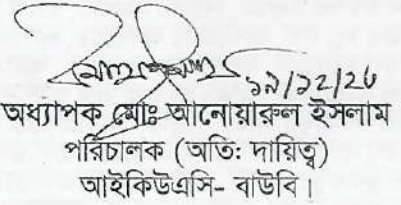 ১৯/১২/২৮
অধ্যাপক মোঃ আনোয়ারুল ইসলাম
পরিচালক (অতি: দায়িত্ব)
আইকিউএসি- বাউবি।